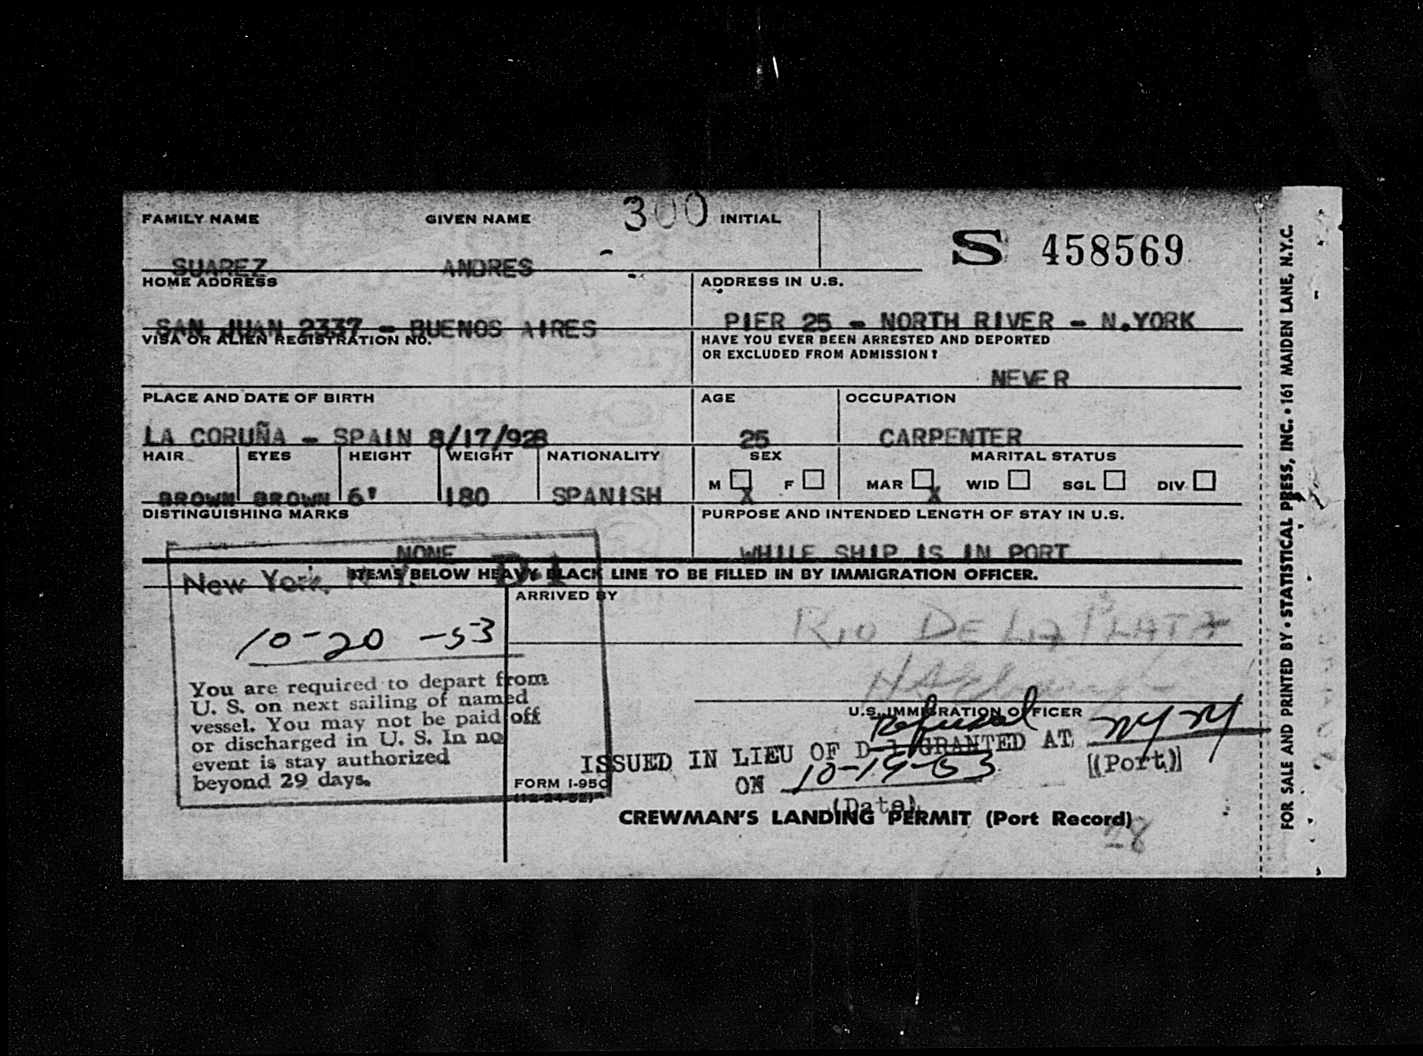 FAMILY NAME GIVEN NAME 300 INITIAL
SUAREZ ANDRES S 458569
HOME ADDRESS ADDRESS IN U.S.
SAN JUAN 2337 - BUENOS AIRES PIER 25 - NORTH RIVER - N.YORK
VISA OR ALIEN REGISTRATION NO. HAVE YOU EVER BEEN ARRESTED AND DEPORTED
OR EXCLUDED FROM ADMISSION?
NEVER
PLACE AND DATE OF BIRTH AGE OCCUPATION
LA CORUÑA - SPAIN 8/17/928 25 CARPENTER
HAIR EYES HEIGHT WEIGHT NATIONALITY SEX MARITAL STATUS
M F MAR WID SGL DIV
BROWN BROWN 6' 180 SPANISH X X
DISTINGUISHING MARKS PURPOSE AND INTENDED LENGTH OF STAY IN U.S.
NONE WHILE SHIP IS IN PORT
ITEMS BELOW HEAVY BLACK LINE TO BE FILLED IN BY IMMIGRATION OFFICER.
New York, N.Y. D-1
ARRIVED BY
RIO DE LA PLATA
10-20-53
You are required to depart from
U. S. on next sailing of named
vessel. You may not be paid off
or discharged in U. S. In no
event is stay authorized
beyond 29 days.
U.S. IMMIGRATION OFFICER
Refusal
ISSUED IN LIEU OF D-1 GRANTED AT NY NY
(Port)
ON 10-19-53
(Date)
FORM I-95C
(12-24-52)
CREWMAN'S LANDING PERMIT (Port Record)
28
FOR SALE AND PRINTED BY • STATISTICAL PRESS, INC. • 161 MAIDEN LANE, N.Y.C.